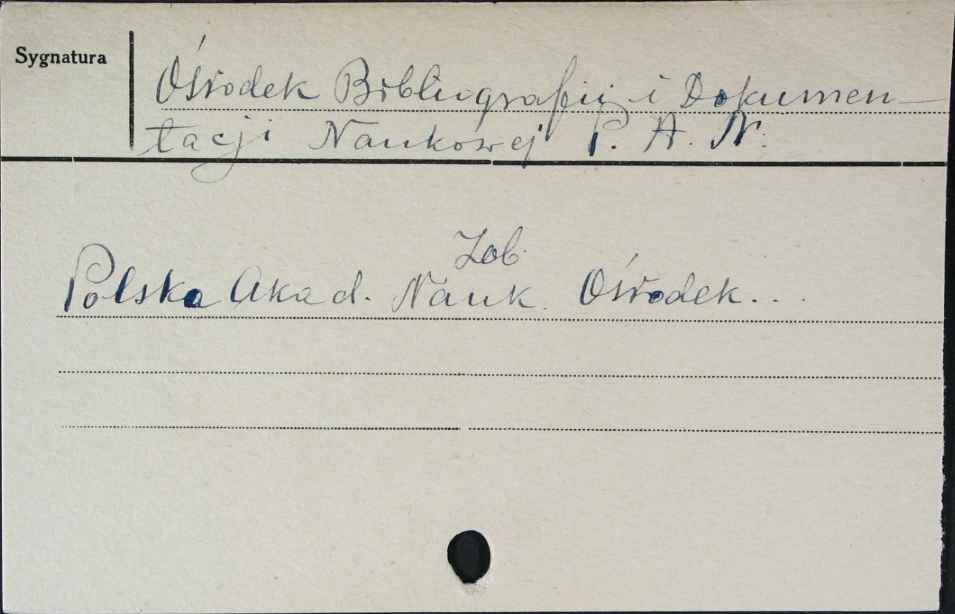 Sygnatura
Ośrodek Bibliografii i Dokumen-
tacji Naukowej P. A. N.
Zob.
Polska Akad. Nauk. Ośrodek...